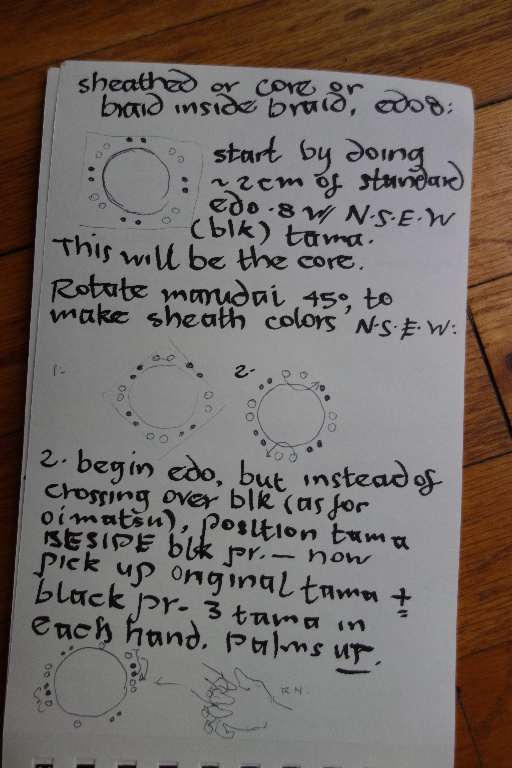 sheathed or core or
braid inside braid, edo8:
start by doing
~2cm of standard
edo-8 w/ N-S-E-W
(blk) tama.
This will be the core.
Rotate marudai 45°, to
make sheath colors N-S-E-W:
1-
2-
2. begin edo, but instead of
crossing over blk (as for
oimatsu), position tama
BESIDE blk pr. — now
pick up original tama +
black pr- 3 tama in
each hand. palms up.
R.H.